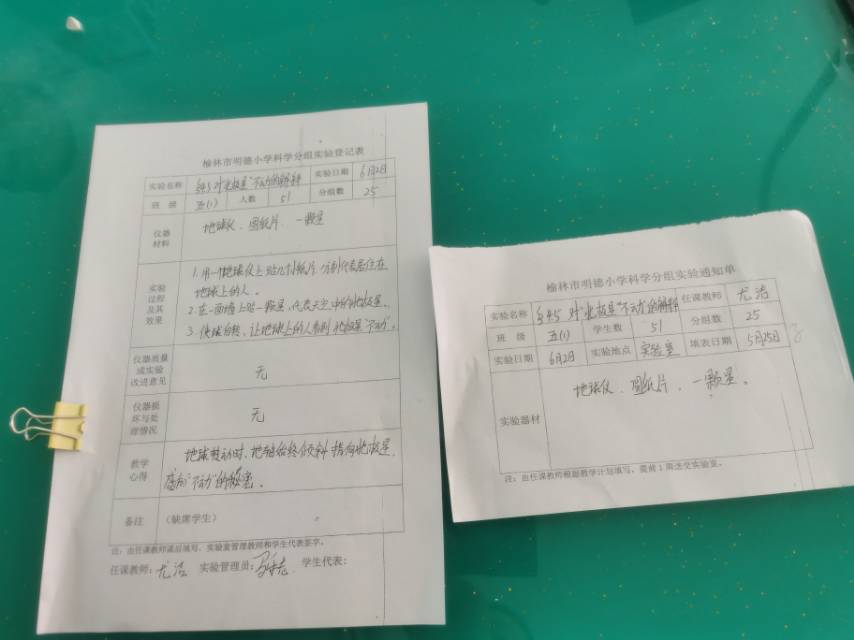 榆林市明德小学科学分组实验登记表
实验名称 §4.5 对"北极星"不动"的解释 实验日期 6月2日
班 级 五(1) 人数 51 分组数 25
仪器材料 地球仪、圆纸片、一颗星
实验过程及其效果
1.用一个地球仪上贴几个小纸片,分别代表居住在
地球上的人。
2.在一面墙上贴一颗星,代表天空中的北极星。
3.使球自转、让地球上的人看到北极星"不动"。
仪器质量或实验改进意见 无
仪器损坏与处理情况 无
教学心得
地球转动时,地轴始终倾斜指向北极星,
"不动"的极星。
备注 (缺席学生)
注:由任课教师课后填写,实验室管理教师和学生代表签字。
任课教师:尤洁 实验管理员: 学生代表:
榆林市明德小学科学分组实验通知单
实验名称 §4.5 对"北极星"不动"的解释 任课教师 尤洁
班 级 五(1) 学生数 51 分组数 25
实验日期 6月2日 实验地点 实验室 填表日期 5月25日
实验器材 地球仪、圆纸片、一颗星。
注:由任课教师根据教学计划填写,提前1周送交实验室。